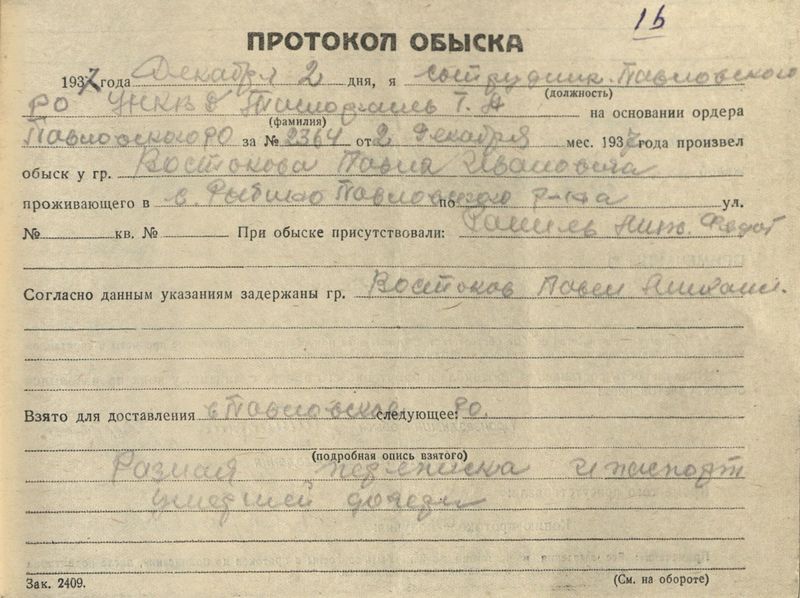 1b
ПРОТОКОЛ ОБЫСКА
1937 года Декабря 2 дня, я сотрудник Павловского
(должность)
РО УНКВД Т. А на основании ордера
(фамилия)
Павловского РО за № 2364 от 2 Декабря мес. 1937 года произвел
обыск у гр. Востокова Павла Ивановича
проживающего в с. Рыбино Павловского р-на по ул.
№ кв. № При обыске присутствовали:
Согласно данным указаниям задержаны гр. Востоков Павел
Взято для доставления в Павловское РО следующее:
(подробная опись взятого)
Разная переписка и паспорт
умершей дочери
Зак. 2409.
(См. на обороте)